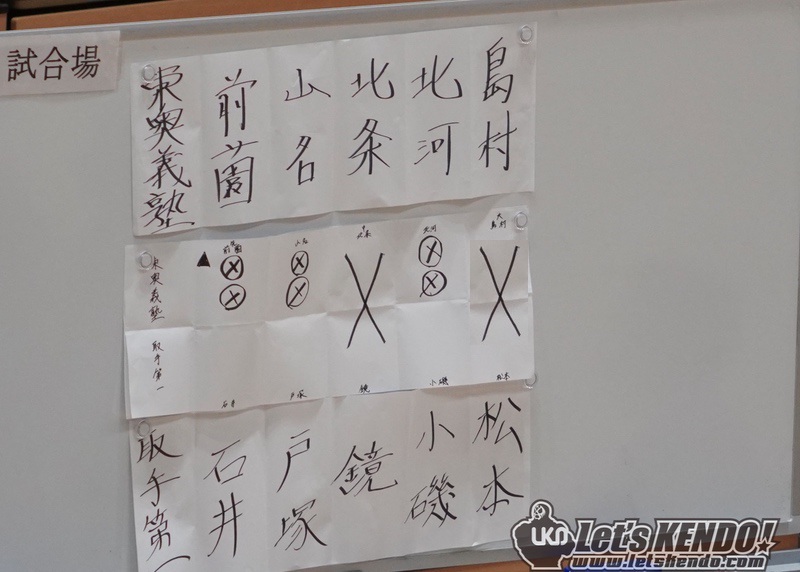 試合場
東奥義塾
前薗
山名
北条
北河
島村
東奥義塾
取手第一
前薗
山名
中
北条
北河
大
島村
石井
戸塚
鏡
小磯
松本
取手第一
石井
戸塚
鏡
小磯
松本
UKN
Let's KENDO!
www.letskendo.com